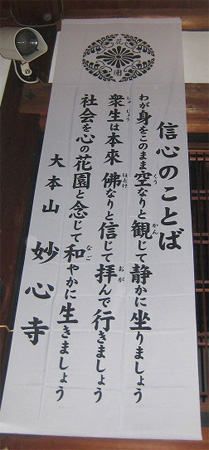 花園
信心のことば
わが身をこのまま空なりと観じて静かに坐りましょう
衆生は本来佛なりと信じて拝んで行きましょう
社会を心の花園と念じて和やかに生きましょう
大本山 妙心寺